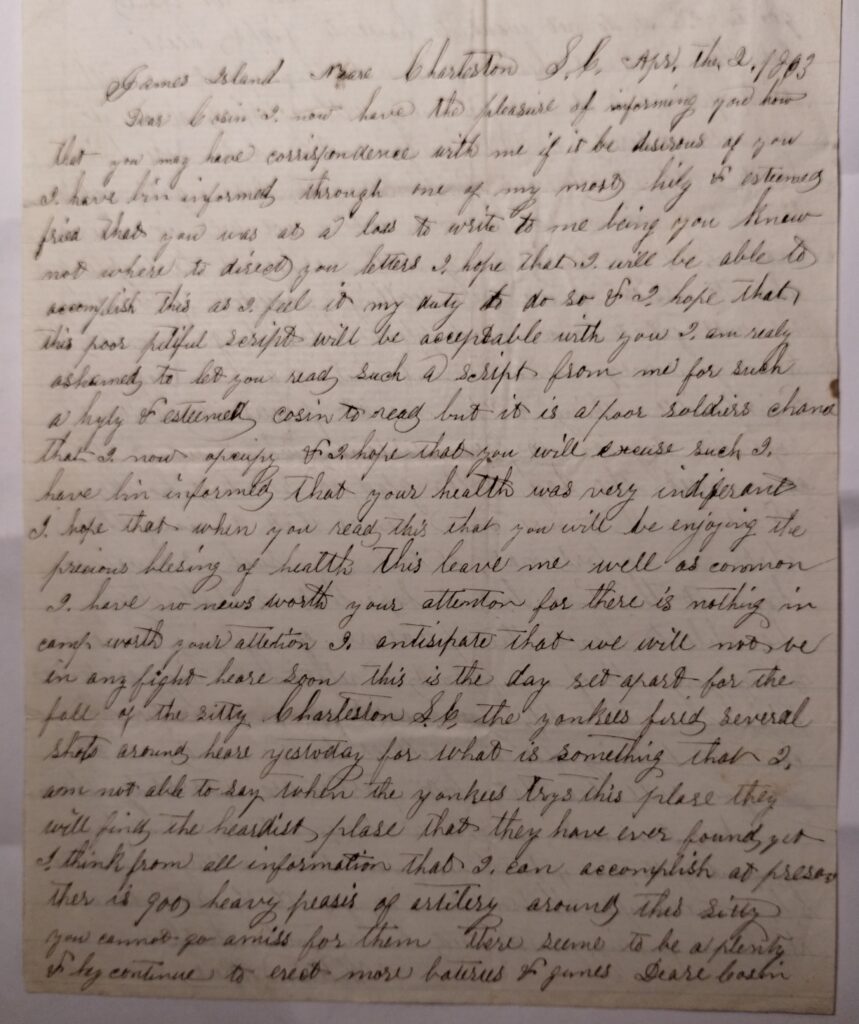 James Island Neare Charleston S.C. Apr. the 2. 1863
Dear Cosin I. now have the pleasure of informing you how
that you may have corrispondence with me if it be disirous of you
I. have bin informed through one of my most hily & esteemed
fried that you was at a loss to write to me being you knew
not where to direct you letters I. hope that I. will be able to
accomplish this as I. feel it my duty to do so & I. hope that
this poor pitiful script will be acceptable with you I. am realy
ashamed to let you read such a script from me for such
a hyly & esteemed cosin to read but it is a poor soldiers chance
that I. now opcupy & I. hope that you will excuse such I.
have bin informed that your health was very indiferant
I. hope that when you read this that you will be enjoying the
precious blesing of health this leave me well as common
I. have no news worth your attenton for there is nothing in
camp worth your attention I. antisipate that we will not be
in any fight heare soon this is the day set apart for the
fall of the sitty Charleston S.C. the yankees fired several
shots around heare yestoday for what is something that I.
am not able to say when the yankees trys this plase they
will find the heardist plase that they have ever found yet
I. think from all information that I. can accomplish at presant
ther is 900 heavy peasis of artitery around this sitty
you cannot go amiss for them there seeme to be a plenty
& continue to erect more bateries & gunes Deare Cosin